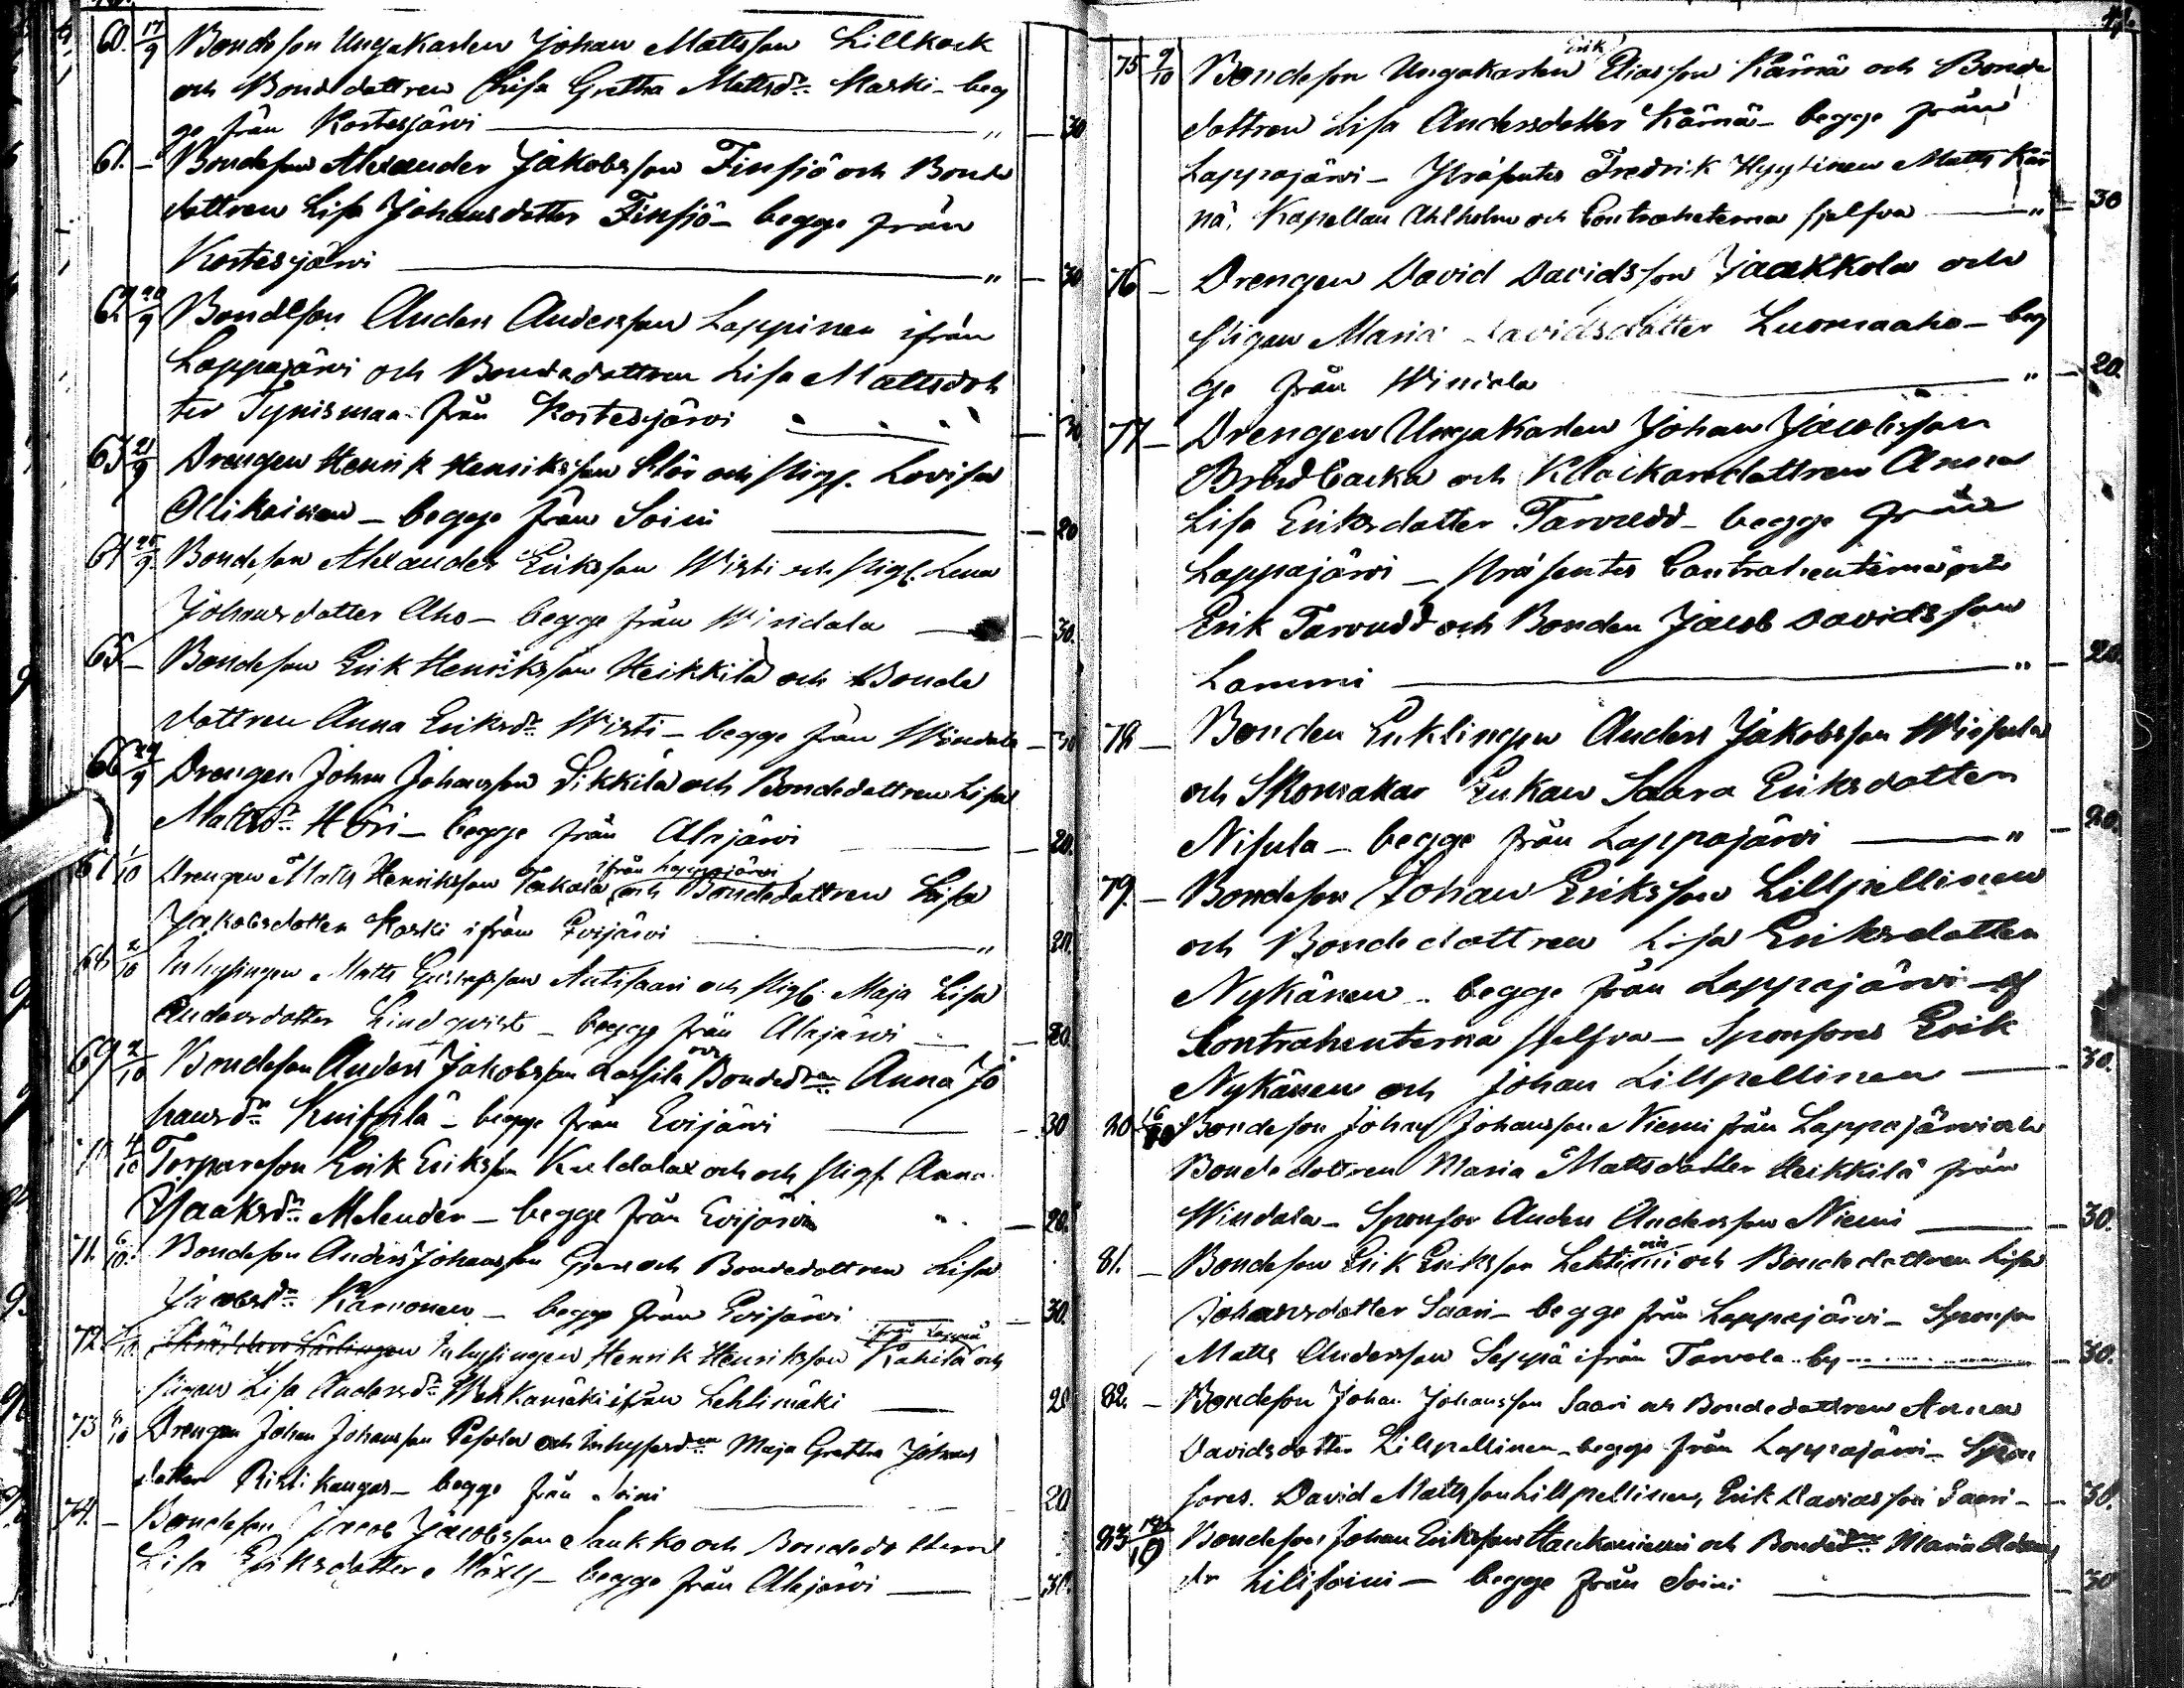 60. 17/9 Bondeson Ungakarlen Johan Mattsson Lillkack
och Bondedottren Lisa Gretha Mattsdr. Kaski - beg
ge från Kortesjärvi " - 30
61. - Bondeson Alexander Jakobsson Finsjö och Bonde
dottren Lisa Johansdotter Finsjö - begge från
Kortesjärvi " - 30
62 20/9 Bondeson Anders Andersson Lappinen ifrån
Lappajärvi och Bondedottren Lisa Mattsdot
ter Tynismaa från Kortesjärvi - 30
63 21/9 Drengen Henrik Henriksson Klör och Pigl. Lovisa
Ollikainen - begge från Soini - 20
64 25/9 Bondeson Alexander Eriksson Wirti och Pigl. Lena
Johansdotter Aho - begge från Windala - 30.
65 - Bondeson Erik Henriksson Heikkilä och Bonde
dottren Anna Eriksdr. Wirti - begge från Windala - 30
66 29/9 Drengen Johan Johansson Sikkilä och Bondedottren Lisa
Mattsdr. Höri - begge från Alajärvi - 20.
67 1/10 Drengen Matts Henriksson Takala ifrån Lappajärvi och Bondedottren Lisa
Jakobsdotter Kaski ifrån Evijärvi " 20.
68 2/10 Inhysingen Matts Gustafsson Antisaari och Pigl. Maja Lisa
Andersdotter Lindqvist - begge från Alajärvi - 20.
69 2/10 Bondeson Anders Jakobsson Lassila och Bondedtrn Anna Jo
hansdr. Knifsilä - begge från Evijärvi - 30
4/10 Torpareson Erik Eriksson Kuldalax och och Pigl. Anna
Jaaksdr. Melender - begge från Evijärvi " - 20.
71. 6/10. Bondeson Anders Johansson och Bondedottren Lisa
Jacobsdr. Kamonen - begge från Evijärvi - 30.
72 /10 Inhysingen Henrik Henriksson Rahila från Lappaj och
Pigan Lisa Andersdr. Wehkamäki ifrån Lehtimäki 20
73 8/10 Drengen Johan Johansson Pesola och Inhysesdtrn Maja Gretha Johans
dotter Ristikangas - begge från Soini - 20
74. - Bondeson Jacob Jacobsson Saukko och Bondedottren
Lisa Eriksdotter - begge från Alajärvi - 30.
75 9/10 Bondeson Ungakarlen Erik Eliasson Kärnä och Bonde
dottren Lisa Andersdotter Kärnä - begge från
Lappajärvi - Præsentes Fredrik Hyytinen Matts Kär
nä, Kapellan Ahlholm och Contrahenterna sjelfva " - 30
76 - Drengen David Davidsson Jaakkola och
Pigan Maria Davidsdotter Luomaaho - beg
ge från Windala " - 20.
77 - Drengen Ungakarlen Johan Jacobsson
Brädbacka och Klockaredottren Anna
Lisa Eriksdotter Tarvudd - begge från
Lappajärvi - Præsentes Contrahenterna och
Erik Tarvudd och Bonden Jacob Davidsson
Lammi " - 20.
78 - Bonden Enklingen Anders Jakobsson Wiisula
och Skomakar Enkan Saara Eriksdotter
Nisula - begge från Lappajärvi " - 20.
79. - Bondeson Johan Eriksson Lillpellinen
och Bondedottren Lisa Eriksdotter
Nykänen - begge från Lappajärvi - af
Contrahenterna sjelfva - Sponsores Erik
Nykänen och Johan Lillpellinen - 30.
80 16/10 Bondeson Johan Johansson Niemi från Lappajärvi och
Bondedottren Maria Mattsdotter Heikkilä från
Windala - Sponsor Anders Andersson Niemi - 30.
81. - Bondeson Erik Eriksson och Bondedottren Lisa
Johansdotter Saari - begge från Lappajärvi - Sponsor
Matts Andersson Seppä ifrån Tarvola by - 30.
82. - Bondeson Johan Johansson Saari och Bondedottren Anna
Davidsdotter Lillpellinen - begge från Lappajärvi - Spon
sores. David Mattsson Lillpellinen, Erik Davidsson Saari - 30.
83 /10 Bondeson Johan Eriksson Haukaniemi och Bondedtrn Maria Adams
dr Lilisoini - begge från Soini - 30